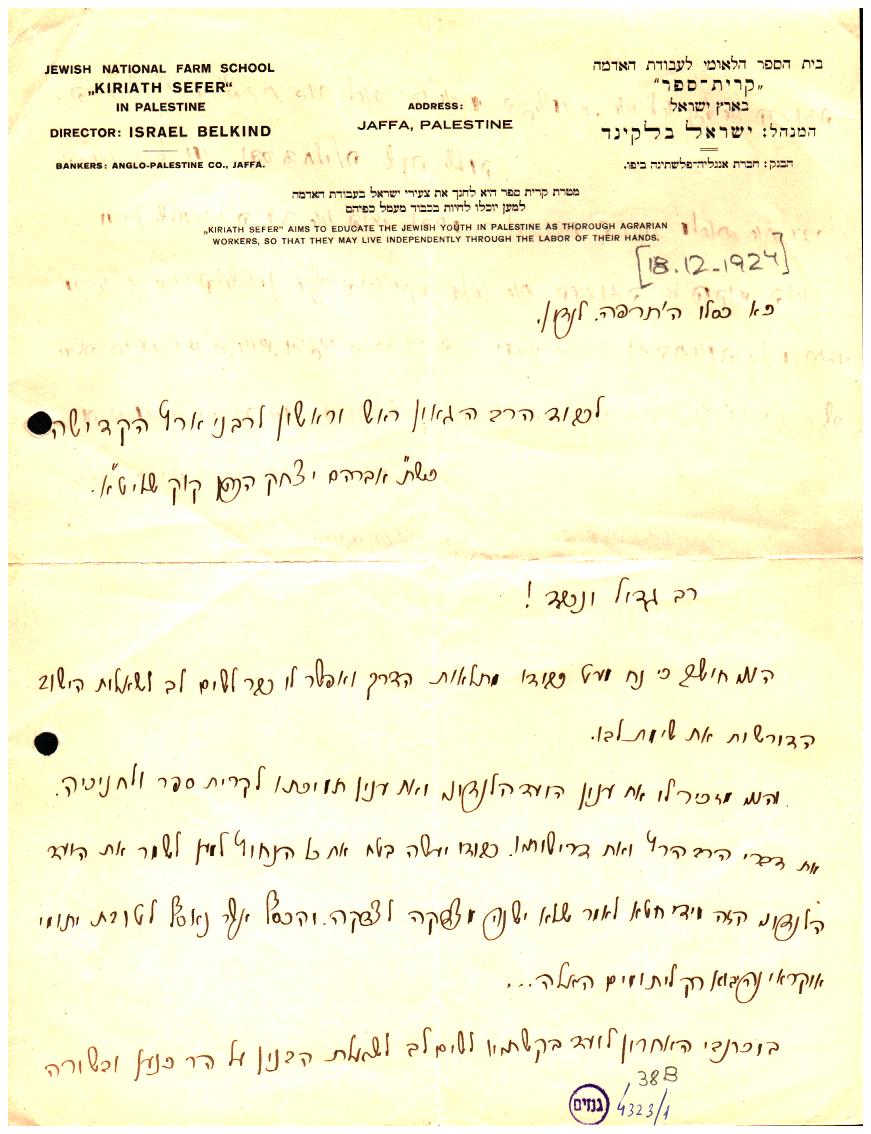 JEWISH NATIONAL FARM SCHOOL
„KIRIATH SEFER“
IN PALESTINE
DIRECTOR: ISRAEL BELKIND
BANKERS: ANGLO-PALESTINE CO., JAFFA.
ADDRESS:
JAFFA, PALESTINE
בית הספר הלאומי לעבודת האדמה
„קרית־ספר“
בארץ ישראל
המנהל: ישראל בלקינד
הבנק: חברת אנגליה־פלשתינה ביפו.
מטרת קרית ספר היא לחנך את צעירי ישראל בעבודת האדמה
למען יוכלו לחיות בכבוד מעמל כפיהם
„KIRIATH SEFER“ AIMS TO EDUCATE THE JEWISH YOUTH IN PALESTINE AS THOROUGH AGRARIAN
WORKERS, SO THAT THEY MAY LIVE INDEPENDENTLY THROUGH THE LABOR OF THEIR HANDS.
[18.12.-1924]
כא כסלו ה'תרפה. לונדון.
לכבוד הרב הגאון ראש וראשון לרבני ארץ הקדושה
כש"ת אברהם יצחק הכהן קוק שליט"א.
רב גדול ונכבד!
הנני חושב כי נח מעט כבודו מתלאות הדרך ואפשר לו כבר לשים לב לשאלות הישוב
הדורשות את שימת לבו.
והנני מזכיר לו את ענין הועד הלונדוני ואת ענין תמיכתו לקרית ספר ולחניכיה.
את דברי הרב הרץ ואת דרישותיו. כבודו יעשה בטח את כל הנחוץ למען לשמר את הועד
הלונדוני הזה מידי חטא לאמר שלא ישנה מצדקה לצדקה. והכסף אשר נאסף לטובת יתומי
אוקראינה יבוא רק ליתומים האלה...
בזכרוני האחרון לועד בקשתיו לשים לב לשאלת הבנין על הר כנען וכשורה
38B
4323/1
גנזים